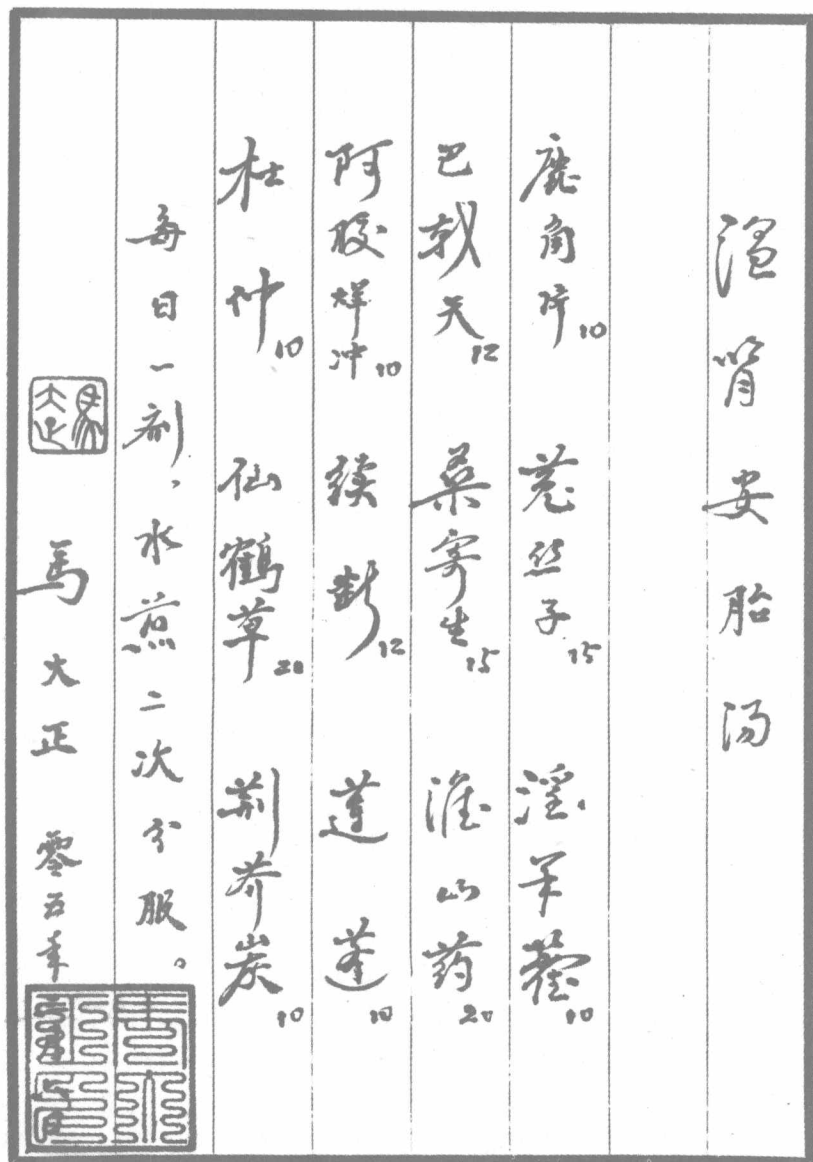 温肾安胎汤
鹿角片10 菟丝子15 淫羊藿10
巴戟天12 桑寄生15 淮山药20
阿胶烊冲10 续断12 莲蓬10
杜仲10 仙鹤草20 荆芥炭10
每日一剂，水煎二次分服。
马大正 零五年